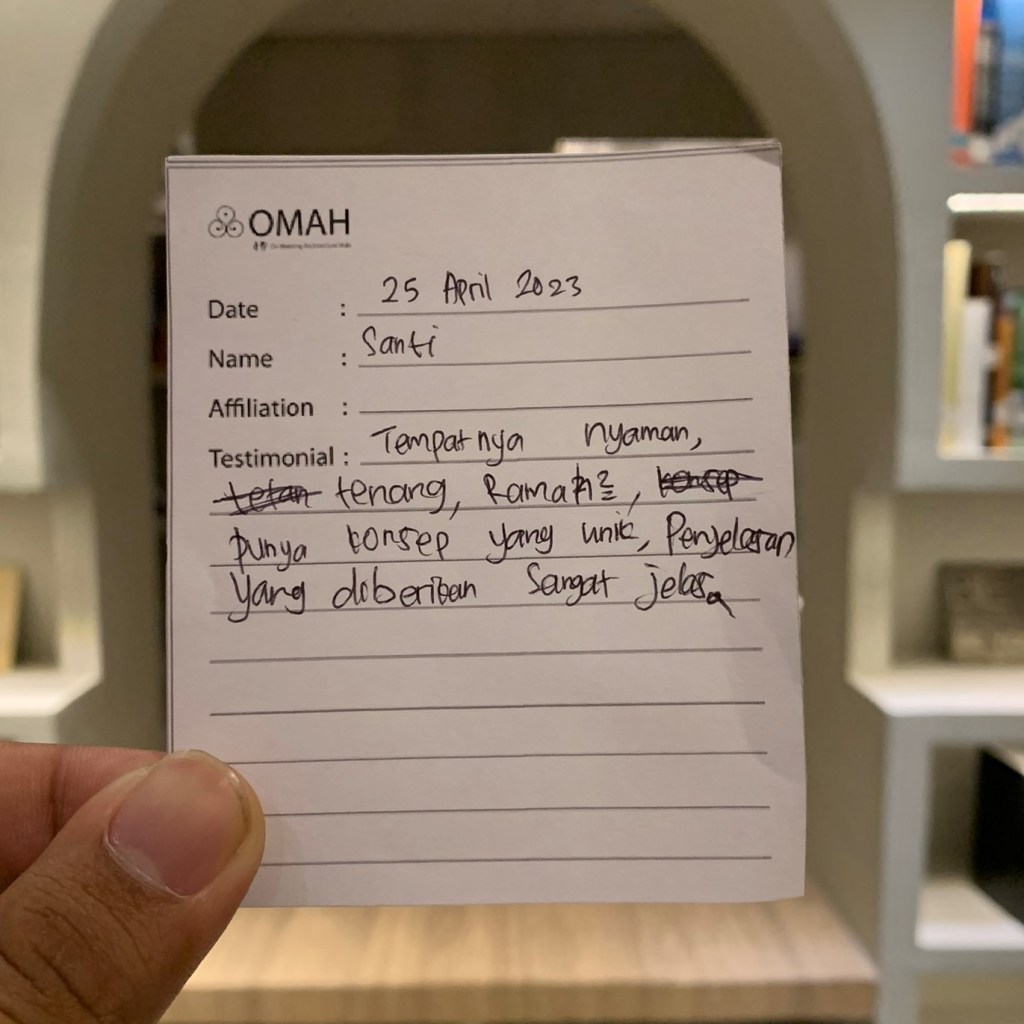 OMAH
Date : 25 April 2023
Name : Santi
Affiliation :
Testimonial : Tempatnya nyaman,
tenang, Ramah2,
punya konsep yang unik, Penjelasan
yang diberikan Sangat jelas.